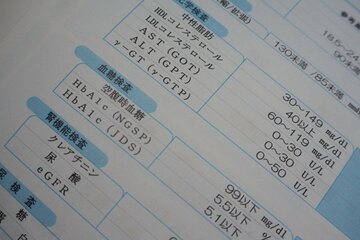 (拡張/縮)
化学検査
中性脂肪 30〜149 mg/dl
HDLコレステロール 40以上 mg/dl
LDLコレステロール 60〜119 mg/dl
AST (GOT) 0〜30 U/L
ALT (GPT) 0〜30 U/L
γ-GT (γ-GTP) 0〜50 U/L
130未満 /85未満
18.5〜24
90
血糖検査
空腹時血糖 99以下
HbA1c (NGSP) 5.5以下 %
HbA1c (JDS) 5.1以下 %
腎機能検査
クレアチニン
尿酸
eGFR
尿検査